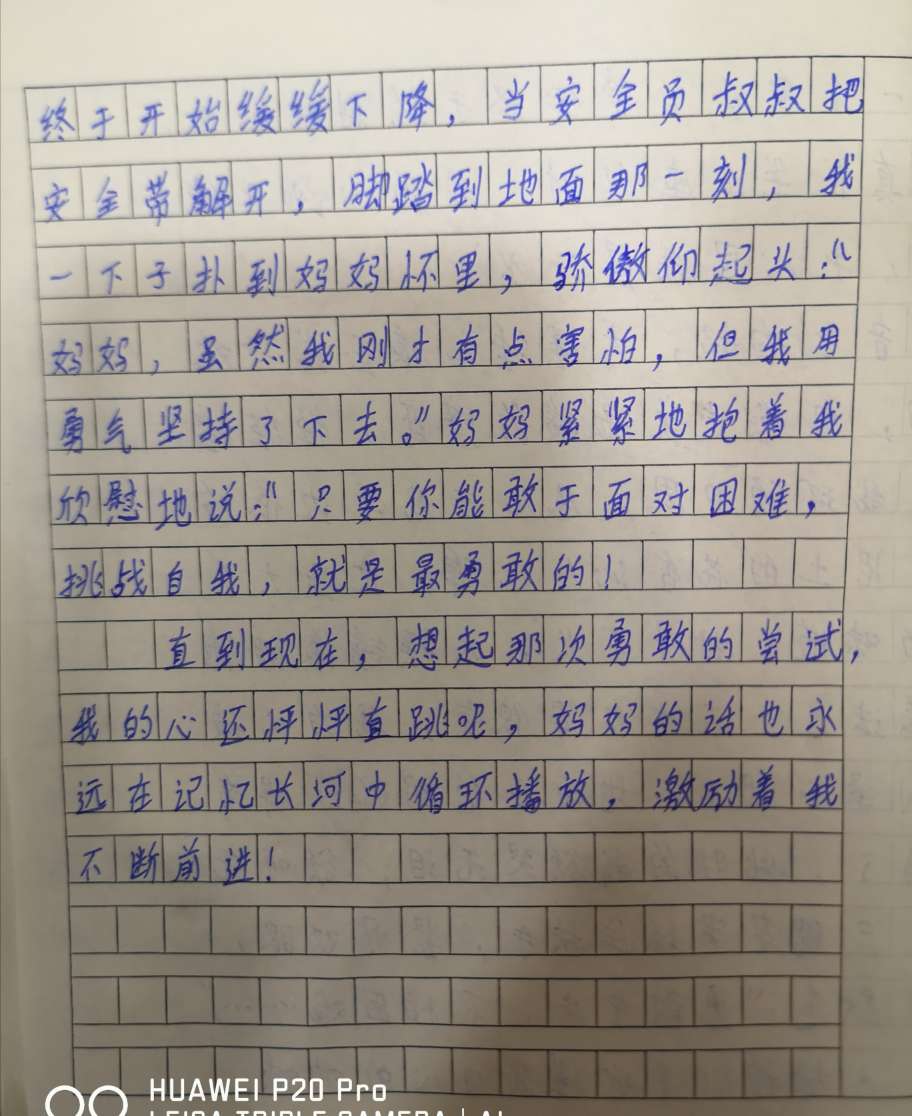 终于开始缓缓下降，当安全员叔叔把
安全带解开，脚踏到地面那一刻，我
一下子扑到妈妈怀里，骄傲仰起头：“
妈妈，虽然我刚才有点害怕，但我用
勇气坚持了下去。”妈妈紧紧地抱着我
欣慰地说：“只要你能敢于面对困难，
挑战自我，就是最勇敢的！
直到现在，想起那次勇敢的尝试，
我的心还怦怦直跳呢，妈妈的话也永
远在记忆长河中循环播放，激励着我
不断前进！
HUAWEI P20 Pro
LEICA TRIPLE CAMERA | AI